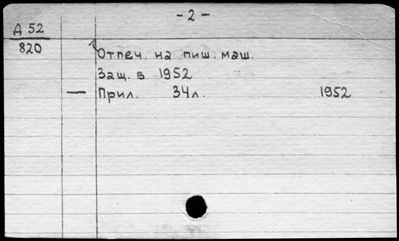 - 2 -
Д 52
820
Отпеч. на пиш. маш.
Защ. в 1952
— Прил. 34 л. 1952